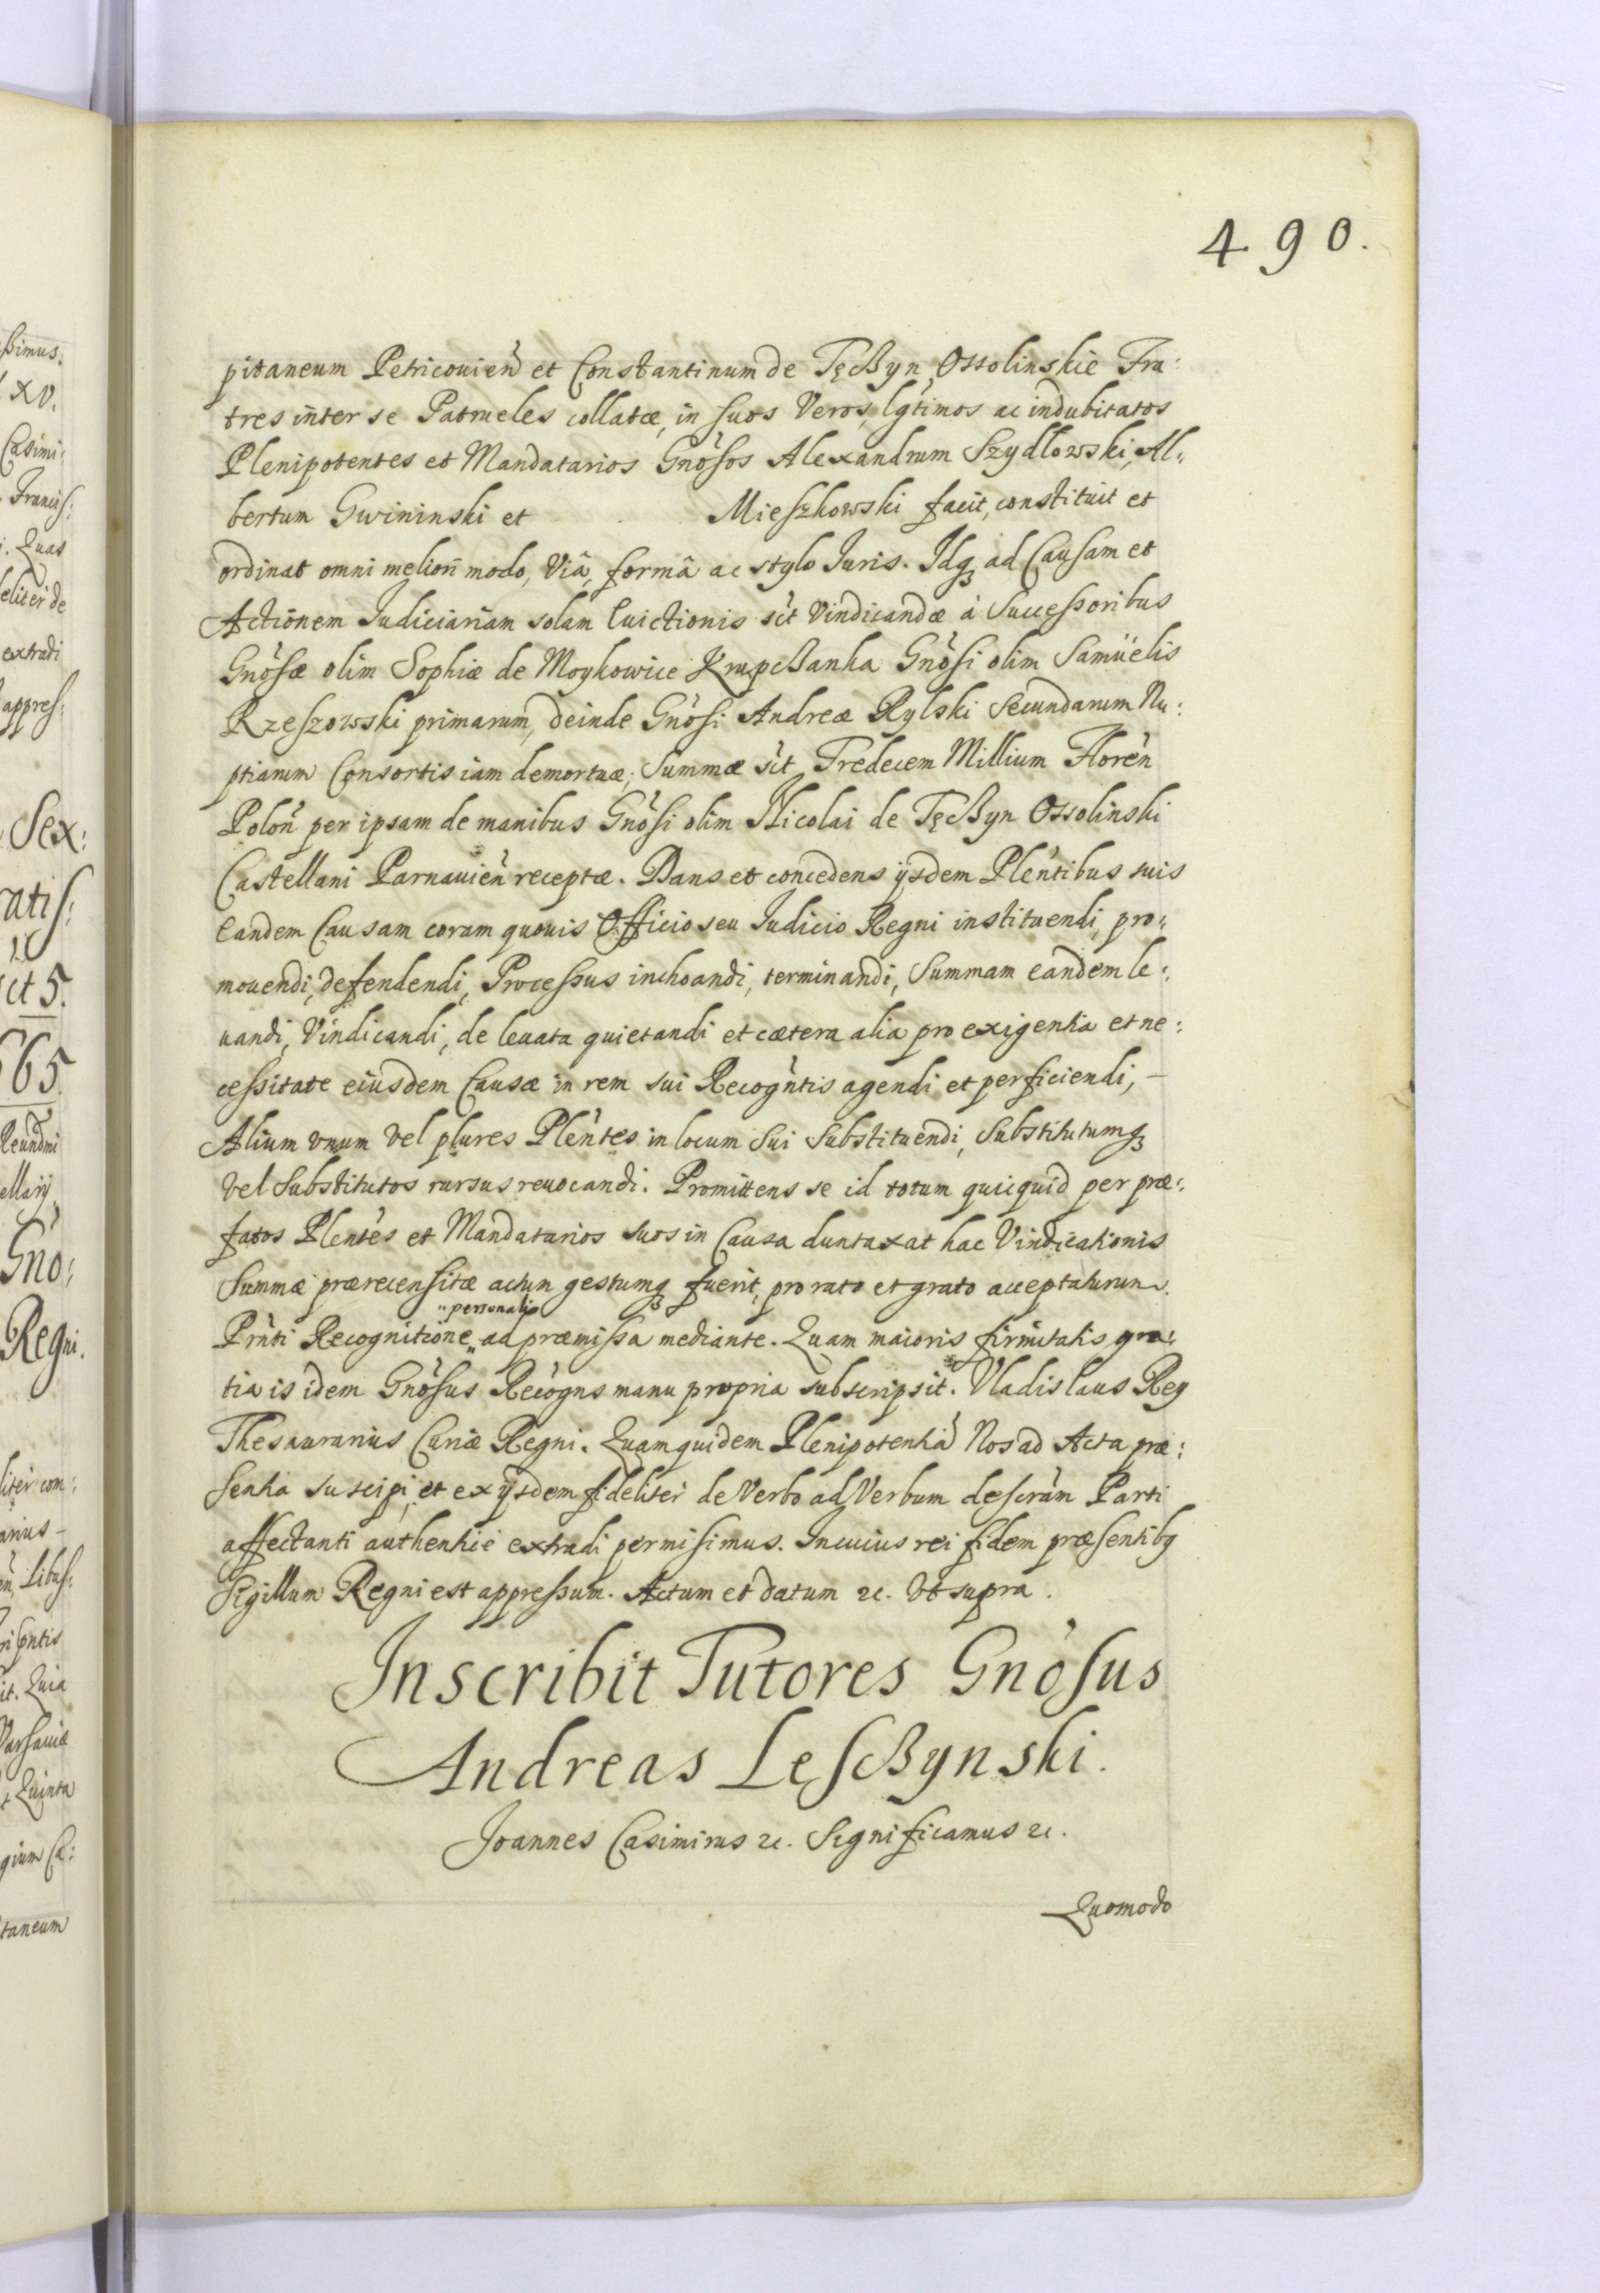 490.
pitaneum Petricouień et Constantinum de Tęczyn Ossolinskie Fra:
tres inter se Patrueles collatæ, in suos Veros, lgtimos ac indubitatos
Plenipotentes et Mandatarios Gnosos Alexandrum Szydlowski, Al:
bertum Gwininski et Mieszkowski facit, constituit et
ordinat omni meliori modo, Viâ, formâ ac stylo Iuris. Idq ad Causam et
Actionem Iudiciariam solam Euictionis sct Vindicandæ à Successoribus
Gnosæ olim Sophiæ de Moykowice Krupczanka Gnosi olim Samüelis
Rzeszowski primarum, deinde Gnosi Andreæ Rylski Secundarum Nu:
ptiarum Consortis iam demortuæ; Summæ sct Tredecem Millium Floreń
Poloń per ipsam de manibus Gnosi olim Nicolai de Tęczyn Ossolinski
Castellani Parnauień receptæ. Dans et concedens ijsdem Plentibus suis
Eandem Causam coram quouis Officio seu Iudicio Regni instituendi, pro:
mouendi, defendendi, Processus inchoandi, terminandi, Summam eandem le:
uandi, Vindicandi, de leuata quietandi et cætera alia pro exigentia et ne:
cessitate eiusdem Causæ in rem sui Recogntis agendi et perficiendi, –
Alium vnum Vel plures Plentes in locum Sui Substituendi, Substitutumq
Vel Substitutos rursus reuocandi. Promittens se id totum quicquid per præ:
fatos Plentes et Mandatarios suos in Causa duntaxat hac Vindicationis
Summæ prærecensitæ actun gestumq fuerit, pro rato et grato accepturum.
" personali
Prnti Recognitione " ad præmissa mediante. Quam maioris firmitatis gra:
tia is idem Gnosus Recogns manu propria subscripsit. Vladislaus Rey
Thesaurarius Curiæ Regni. Quamquidem Plenipotentia Nos ad Acta præ:
sentia suscipi, et ex ijsdem fideliter de Verbo ad Verbum descram Parti
affectanti authentice extradi permisimus. In cuius rei fidem præsentibq
Sigillum Regni est appressum. Actum et datum &c. Vt supra.
Inscribit Tutores Gnosus
Andreas Lesczynski.
Joannes Casimirus &c. Significamus &c.
Quomodo